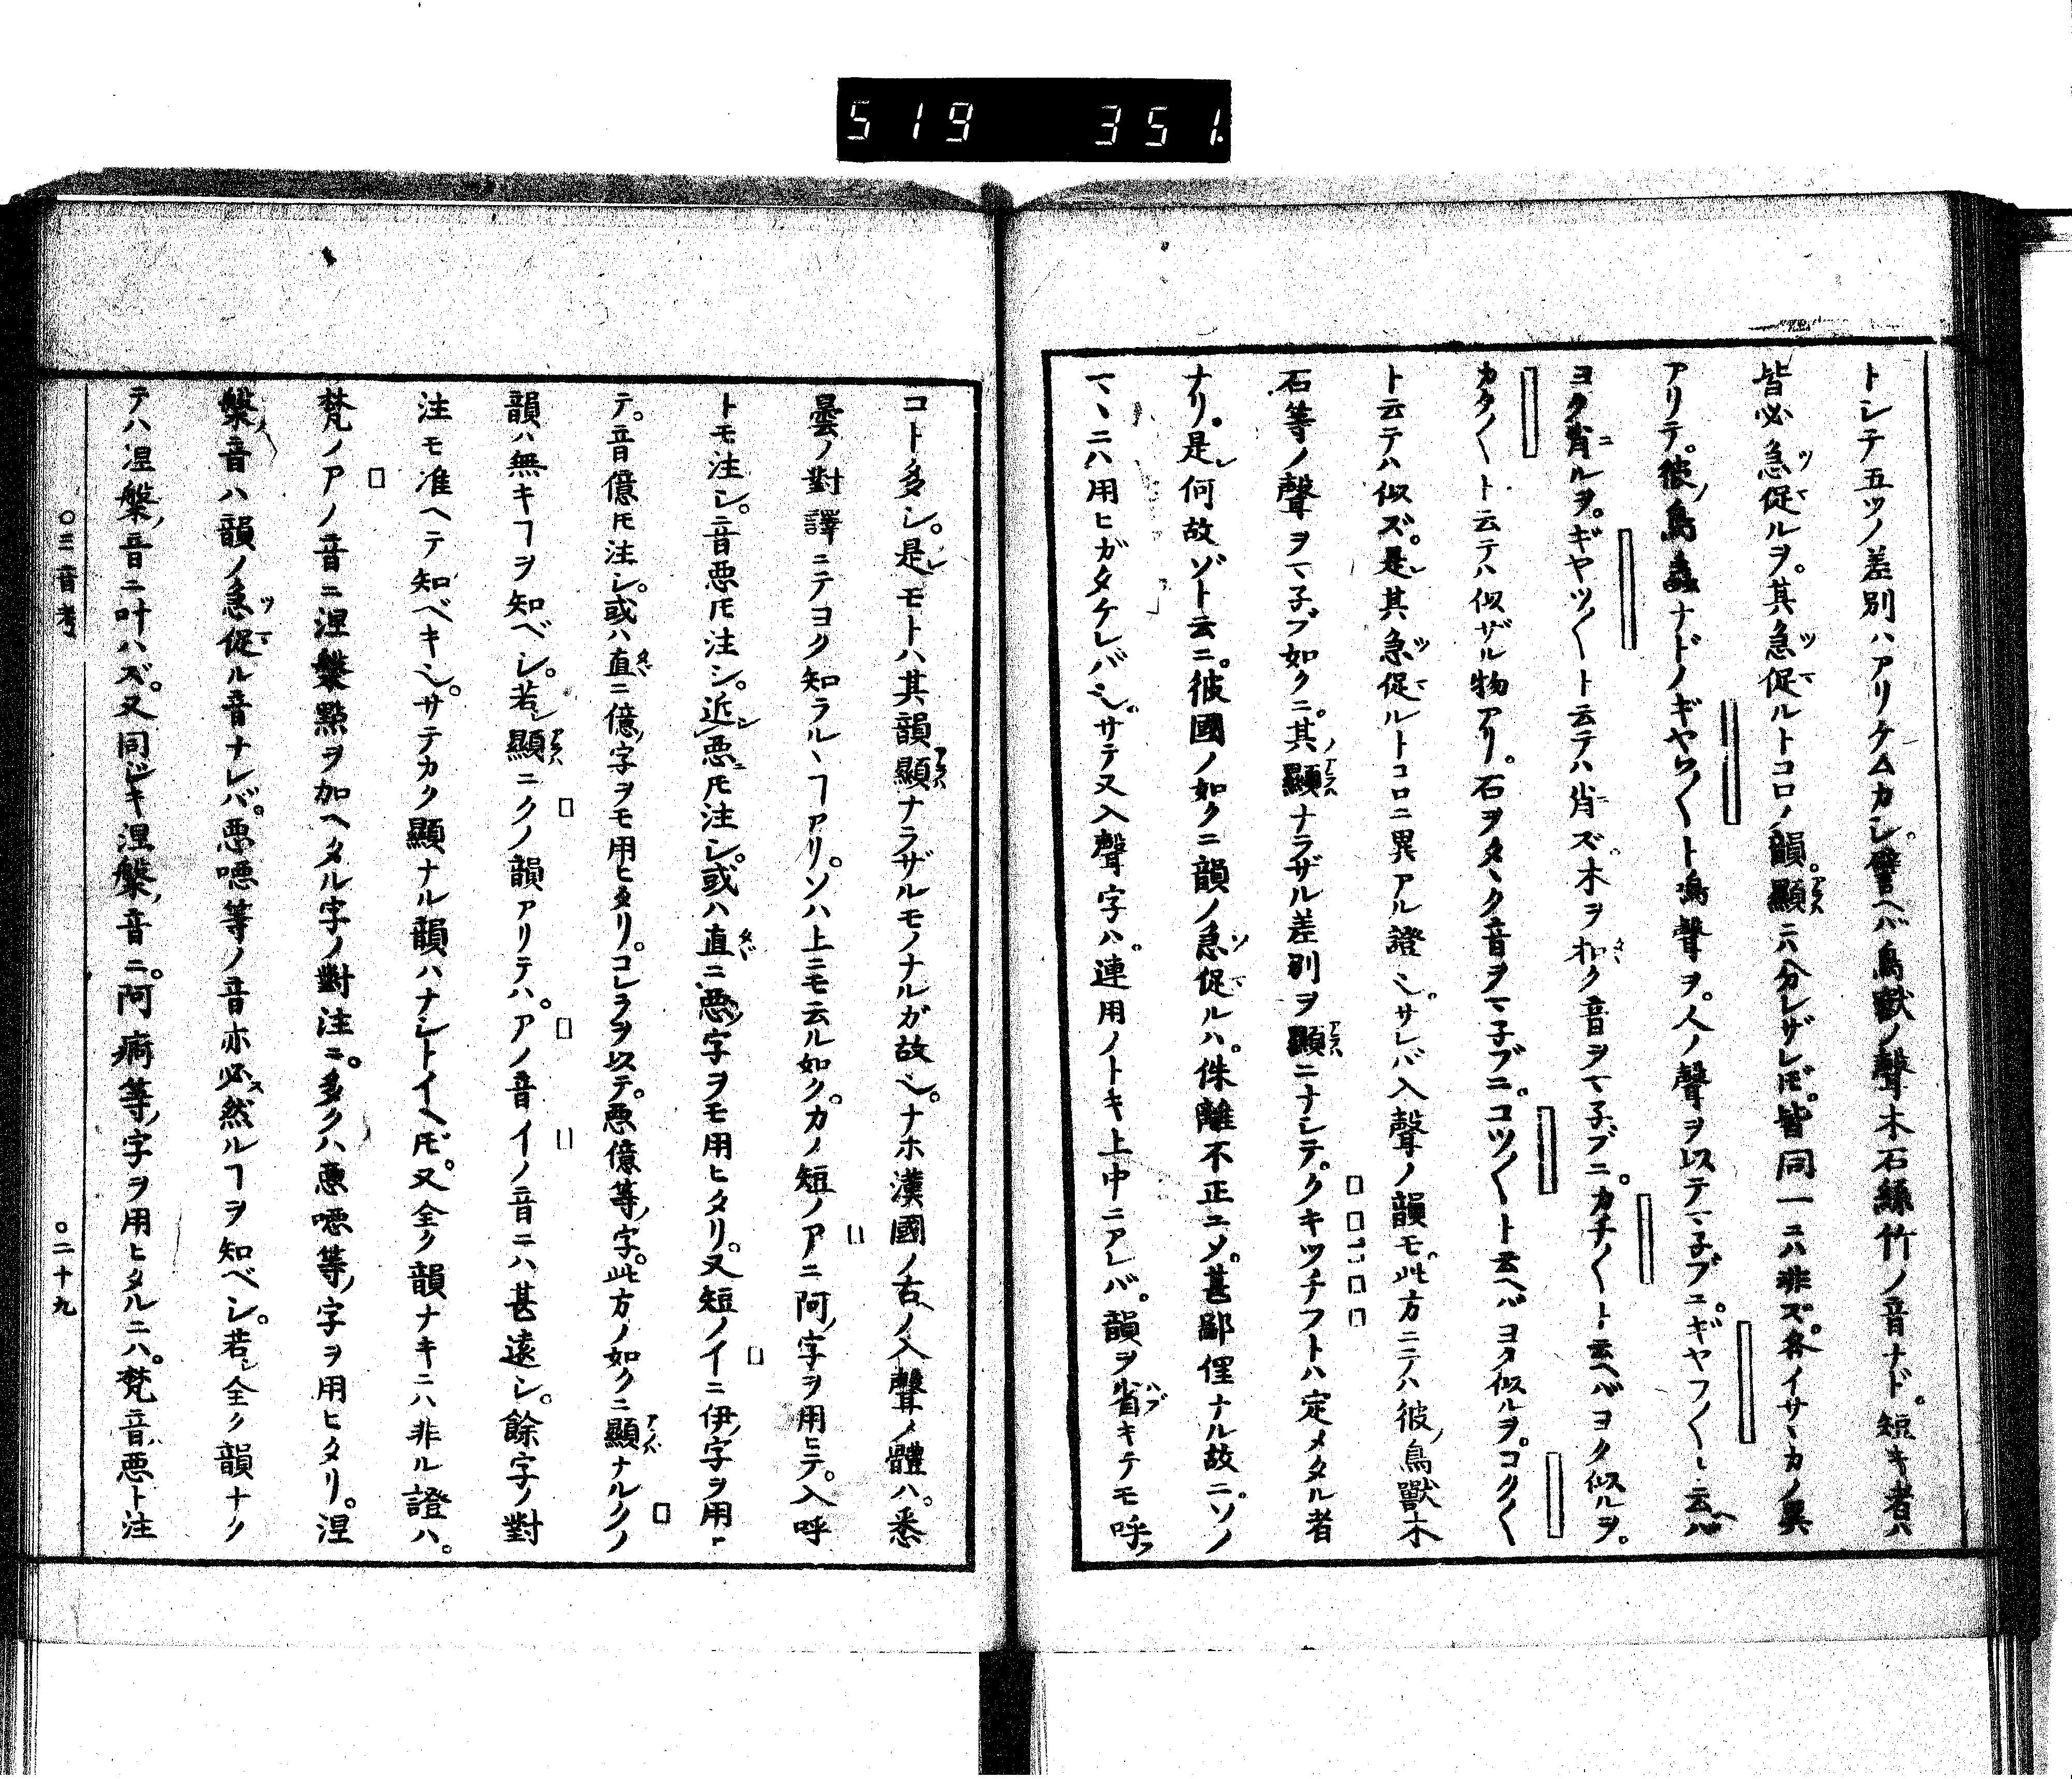 519 351.
トシテ五ツノ差別ハアリケムカシ。譬ヘバ鳥獸ノ聲木石絲竹ノ音ナド。短キ者ハ
皆必急促ルヲ。其急促ルトコロノ韻。顯ニハ分レザレ𪜈。皆同一ニハ非ズ。各イサヽカノ異
アリテ。彼ノ鳥蟲ナドノギヤウ〱ト鳴聲ヲ。人ノ聲ヲ以テマ子ブニ。ギヤフ〱ト云ヘバ
ヨク肖ルヲ。ギヤツ〱ト云テハ肖ズ。木ヲ扣ク音ヲマ子ブニ。カチ〱ト云ヘバヨク似ルヲ。
カク〱ト云テハ似ザル物アリ。石ヲタヽク音ヲマ子ブニ。コツ〱ト云ヘバヨク似ルヲ。コク〱
ト云テハ似ズ。是レ其急促ルトコロニ異アル證也。サレバ入聲ノ韻モ。此方ニテハ彼ノ鳥獸木
石等ノ聲ヲマ子ブ如クニ。其ノ顯ナラザル差別ヲ顯ニナシテ。クキツチフトハ定メタル者
ナリ。是レ何故ゾト云ニ。彼國ノ如クニ韻ノ急促ルハ。侏離不正ニメ。甚鄙俚ナル故ニ。ソノ
マヽニハ用ヒガタケレバ也。サテ又入聲字ハ。連用ノトキ上中ニアレバ。韻ヲ省キテモ呼ブ
コト多シ。是レモトハ其韻顯ナラザルモノナルガ故也。ナホ漢國ノ古ヘノ入聲ノ體ハ。悉
曇ノ對譯ニテヨク知ラルヽヿアリ。ソハ上ニモ云ル如ク。カノ短ノアニ阿ノ字ヲ用ヒテ。入呼
トモ注シ。ニ音惡𪜈注シ。近シ惡ニ𪜈注シ。或ハ直ニ惡ノ字ヲモ用ヒタリ。又短ノイニ伊ノ字ヲ用ヒ
テ。音億𪜈注シ。或ハ直ニ億ノ字ヲモ用ヒタリ。コレラヲ以テ。惡億等ノ字。此方ノ如クニ顯ナルクノ
韻ハ無キヿヲ知ベシ。若シ顯ニクノ韻アリテハ。アノ音イノ音ニハ甚遠シ。餘字ノ對
注モ准ヘテ知ベキ也。サテカク顯ナル韻ハナシトイヘ𪜈。又全ク韻ナキニハ非ル證ハ。
梵ノアノ音ニ涅槃點ヲ加ヘタル字ノ對注ニ。多クハ惡噁等ノ字ヲ用ヒタリ。涅
槃ノ音ハ韻ノ急促ル音ナレバ。惡噁等ノ音亦必然ルヿヲ知ベシ。若シ全ク韻ナク
テハ涅槃ノ音ニ叶ハズ。又同ジキ涅槃ノ音ニ。阿痾等ノ字ヲ用ヒタルニハ。梵音惡ト注
○三音考 ○二十九